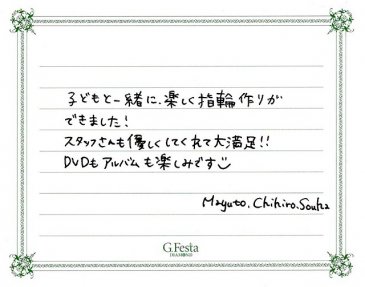 子どもと一緒に、楽しく指輪作りが
できました!
スタッフさんも優しくしてくれて大満足!!
DVDもアルバムも楽しみです
Mayuto. Chihiro.
G.Festa
DIAMOND